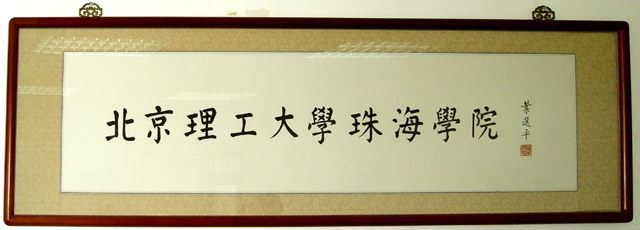 北京理工大學珠海學院
葉選平